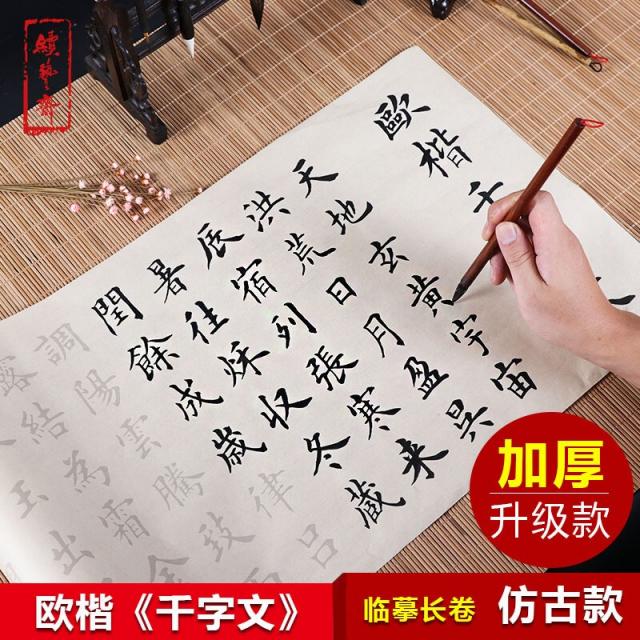 續藝齋
歐楷千
天地玄黃宇宙
洪荒日月盈昃
辰宿列張寒來
暑往秋收冬藏
閏餘成歲律呂
調陽雲騰致
露結為霜
玉出
加厚
升级款
欧楷《千字文》
临摹长卷 仿古款